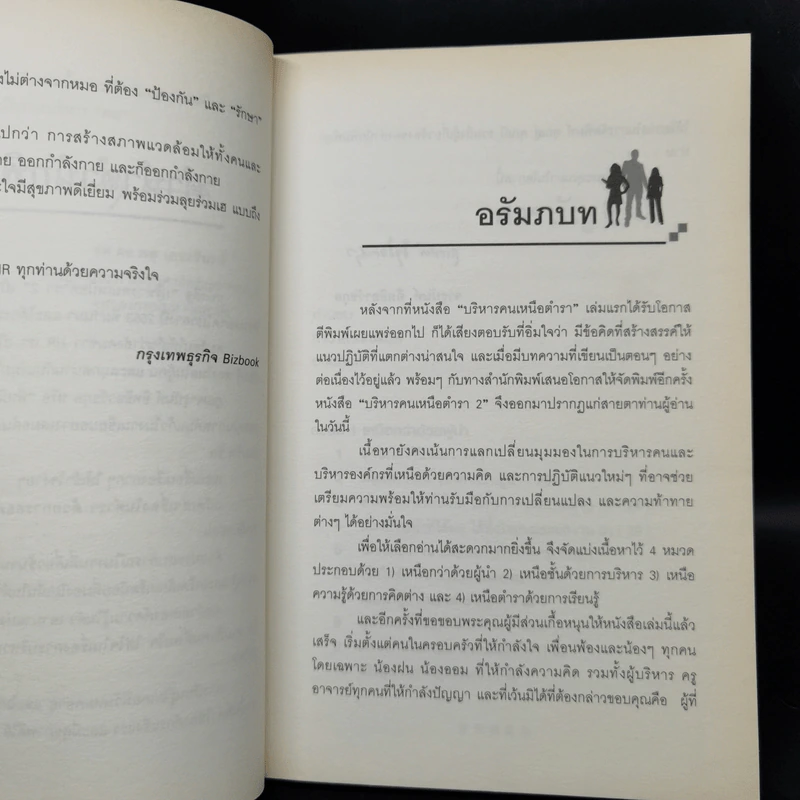 งไม่ต่างจากหมอ ที่ต้อง “ป้องกัน” และ “รักษา”
ปกว่า การสร้างสภาพแวดล้อมให้ทั้งคนและ
าย ออกกำลังกาย และก็ออกกำลังกาย
ะใจมีสุขภาพดีเยี่ยม พร้อมร่วมลุยร่วมเฮ แบบถึง
HR ทุกท่านด้วยความจริงใจ
กรุงเทพธุรกิจ Bizbook
อรัมภบท
หลังจากที่หนังสือ “บริหารคนเหนือตำรา” เล่มแรกได้รับโอกาส
ตีพิมพ์เผยแพร่ออกไป ก็ได้เสียงตอบรับที่อิ่มใจว่า มีข้อคิดที่สร้างสรรค์ให้
แนวปฏิบัติที่แตกต่างน่าสนใจ และเมื่อมีบทความที่เขียนเป็นตอนๆ อย่าง
ต่อเนื่องไว้อยู่แล้ว พร้อมๆ กับทางสำนักพิมพ์เสนอโอกาสให้จัดพิมพ์อีกครั้ง
หนังสือ “บริหารคนเหนือตำรา 2” จึงออกมาปรากฏแก่สายตาท่านผู้อ่าน
ในวันนี้
เนื้อหายังคงเน้นการแลกเปลี่ยนมุมมองในการบริหารคนและ
บริหารองค์กรที่เหนือด้วยความคิด และการปฏิบัติแนวใหม่ๆ ที่อาจช่วย
เตรียมความพร้อมให้ท่านรับมือกับการเปลี่ยนแปลง และความท้าทาย
ต่างๆ ได้อย่างมั่นใจ
เพื่อให้เลือกอ่านได้สะดวกมากยิ่งขึ้น จึงจัดแบ่งเนื้อหาไว้ 4 หมวด
ประกอบด้วย 1) เหนือกว่าด้วยผู้นำ 2) เหนือชั้นด้วยการบริหาร 3) เหนือ
ความรู้ด้วยการคิดต่าง และ 4) เหนือตำราด้วยการเรียนรู้
และอีกครั้งที่ขอขอบพระคุณผู้มีส่วนเกื้อหนุนให้หนังสือเล่มนี้แล้ว
เสร็จ เริ่มตั้งแต่คนในครอบครัวที่ให้กำลังใจ เพื่อนพ้องและน้องๆ ทุกคน
โดยเฉพาะ น้องฝน น้องออม ที่ให้กำลังความคิด รวมทั้งผู้บริหาร ครู
อาจารย์ทุกคนที่ให้กำลังปัญญา และที่เว้นมิได้ที่ต้องกล่าวขอบคุณคือ ผู้ที่